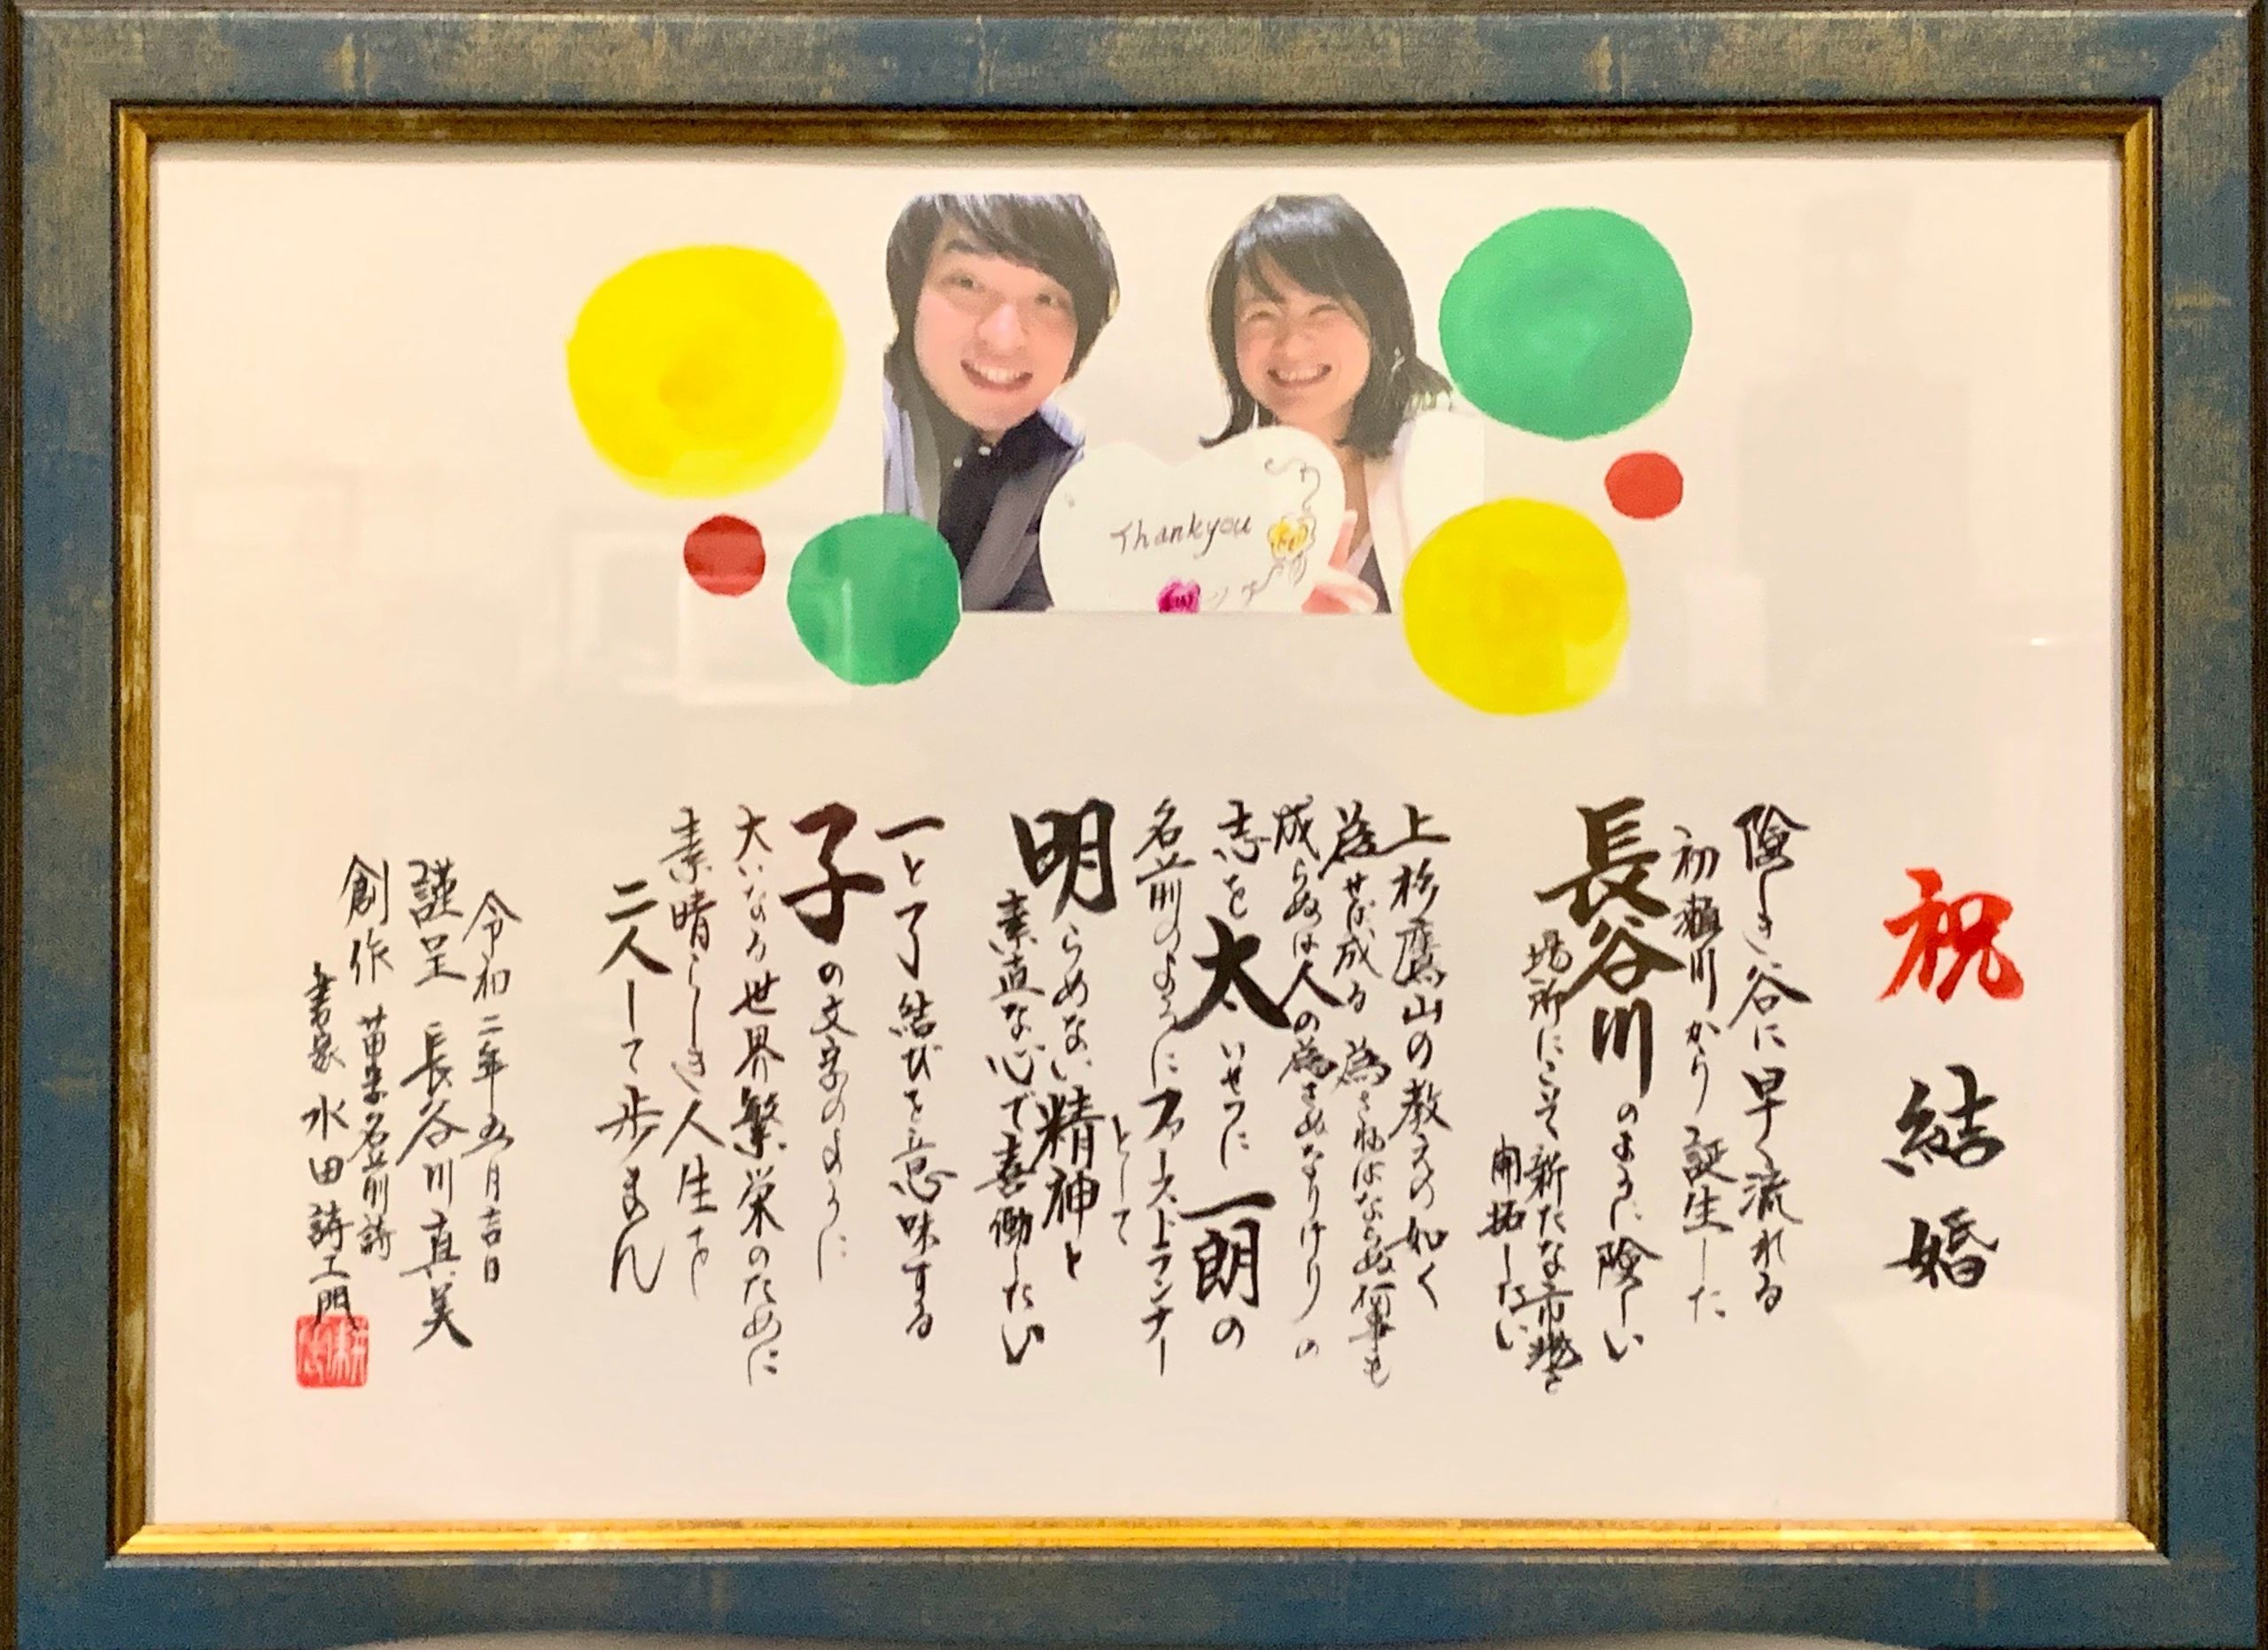 Thankyou
祝 結婚
険しき谷に早く流れる
初瀬川から誕生した
長谷川のように険しい
場所にこそ新たな市場を
開拓したい
上杉鷹山の教えの如く
為せば成る 為さねばならぬ何事も
成らぬは人の為さぬなりけりの
志を太いせつに一朗の
名前のようにファーストランナー
として
明らめない精神と
素直な心で喜働したい
一と了 結びを意味する
子の文字のように
大いなる世界繁栄のために
素晴らしき人生を
二人して歩まん
令和二年五月吉日
謹呈 長谷川真美
創作 苗字名前詩
書家 水田詩工門